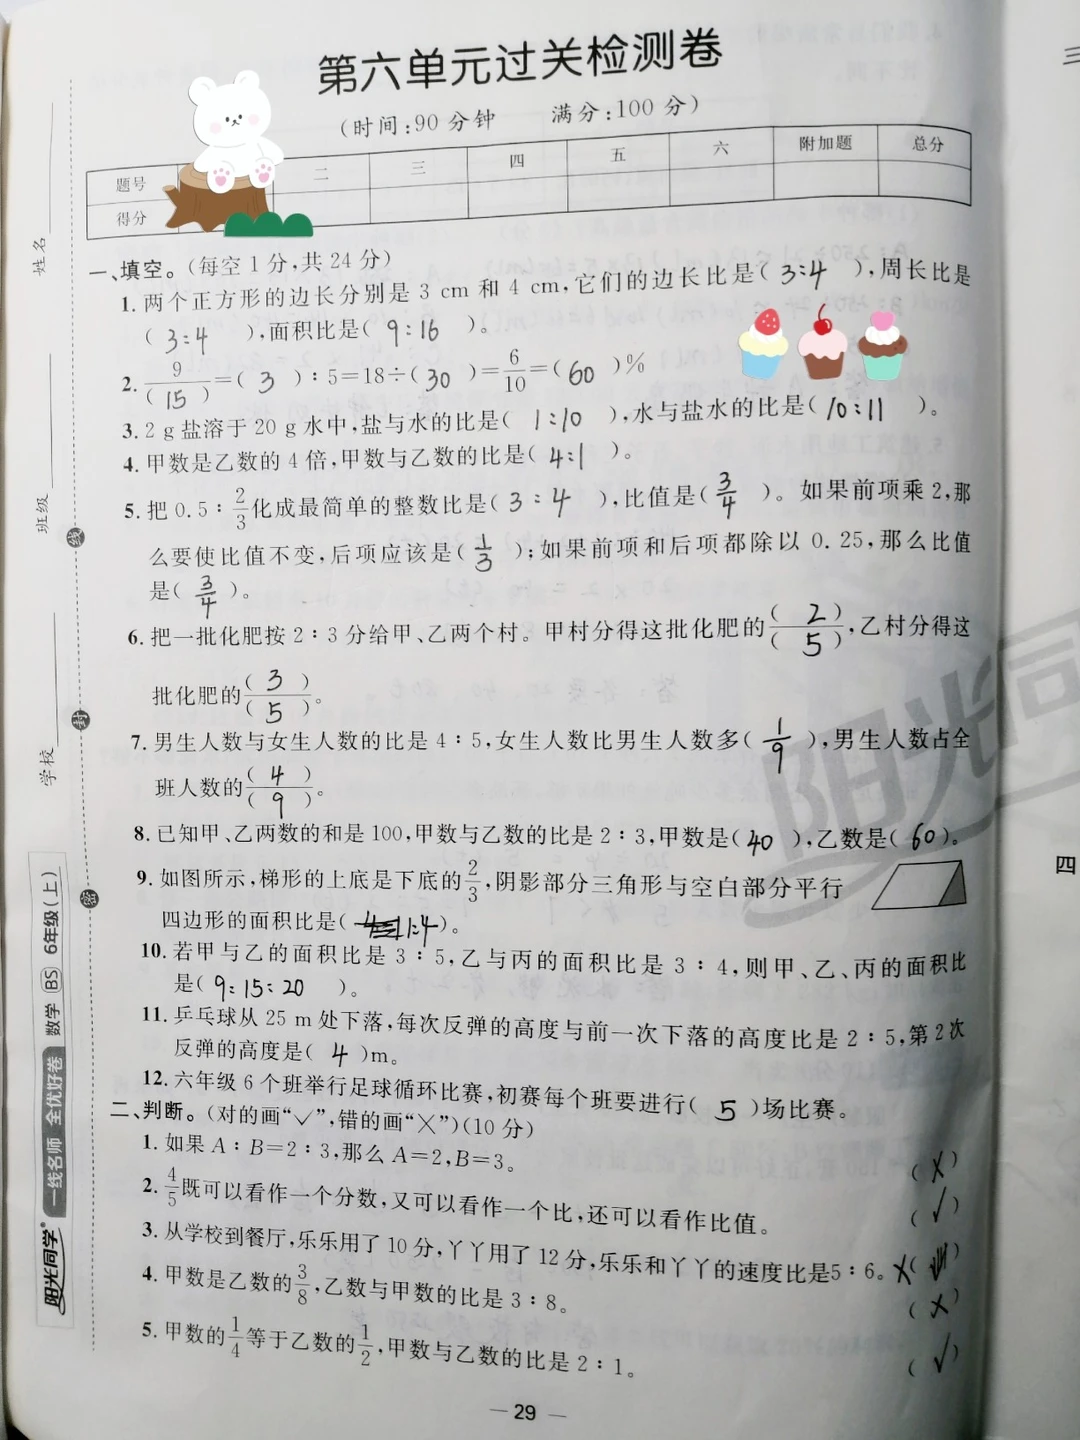 第六单元过关检测卷
(时间:90分钟 满分:100分)
题号 二 三 四 五 六 附加题 总分
得分
一、填空。(每空1分,共24分)
1.两个正方形的边长分别是3 cm和4 cm,它们的边长比是( 3:4 ),周长比是
( 3:4 ),面积比是( 9:16 )。
2. 9/(15)=( 3 ):5=18÷(30)=6/10=(60)%
3.2 g盐溶于20 g水中,盐与水的比是( 1:10 ),水与盐水的比是(10:11)。
4.甲数是乙数的4倍,甲数与乙数的比是( 4:1 )。
5.把0.5:2/3化成最简单的整数比是( 3:4 ),比值是( 3/4 )。如果前项乘2,那
么要使比值不变,后项应该是( 1/3 );如果前项和后项都除以0.25,那么比值
是( 3/4 )。
6.把一批化肥按2:3分给甲、乙两个村。甲村分得这批化肥的(2)/(5),乙村分得这
批化肥的(3)/(5)。
7.男生人数与女生人数的比是4:5,女生人数比男生人数多( 1/9 ),男生人数占全
班人数的(4)/(9)。
8.已知甲、乙两数的和是100,甲数与乙数的比是2:3,甲数是(40),乙数是(60)。
9.如图所示,梯形的上底是下底的2/3,阴影部分三角形与空白部分平行
四边形的面积比是( 1:4 )。
10.若甲与乙的面积比是3:5,乙与丙的面积比是3:4,则甲、乙、丙的面积比
是(9:15:20)。
11.乒乓球从25 m处下落,每次反弹的高度与前一次下落的高度比是2:5,第2次
反弹的高度是( 4 )m。
12.六年级6个班举行足球循环比赛,初赛每个班要进行( 5 )场比赛。
二、判断。(对的画“√”,错的画“×”)(10分)
1.如果A:B=2:3,那么A=2,B=3。 (×)
2. 4/5既可以看作一个分数,又可以看作一个比,还可以看作比值。 (√)
3.从学校到餐厅,乐乐用了10分,丫丫用了12分,乐乐和丫丫的速度比是5:6。×( )
4.甲数是乙数的3/8,乙数与甲数的比是3:8。 (×)
5.甲数的1/4等于乙数的1/2,甲数与乙数的比是2:1。 (√)
— 29 —
姓名
班级
学校
线
封
密
阳光同学 一线名师 全优好卷 数学 BS 6年级(上)
阳光同
三
四